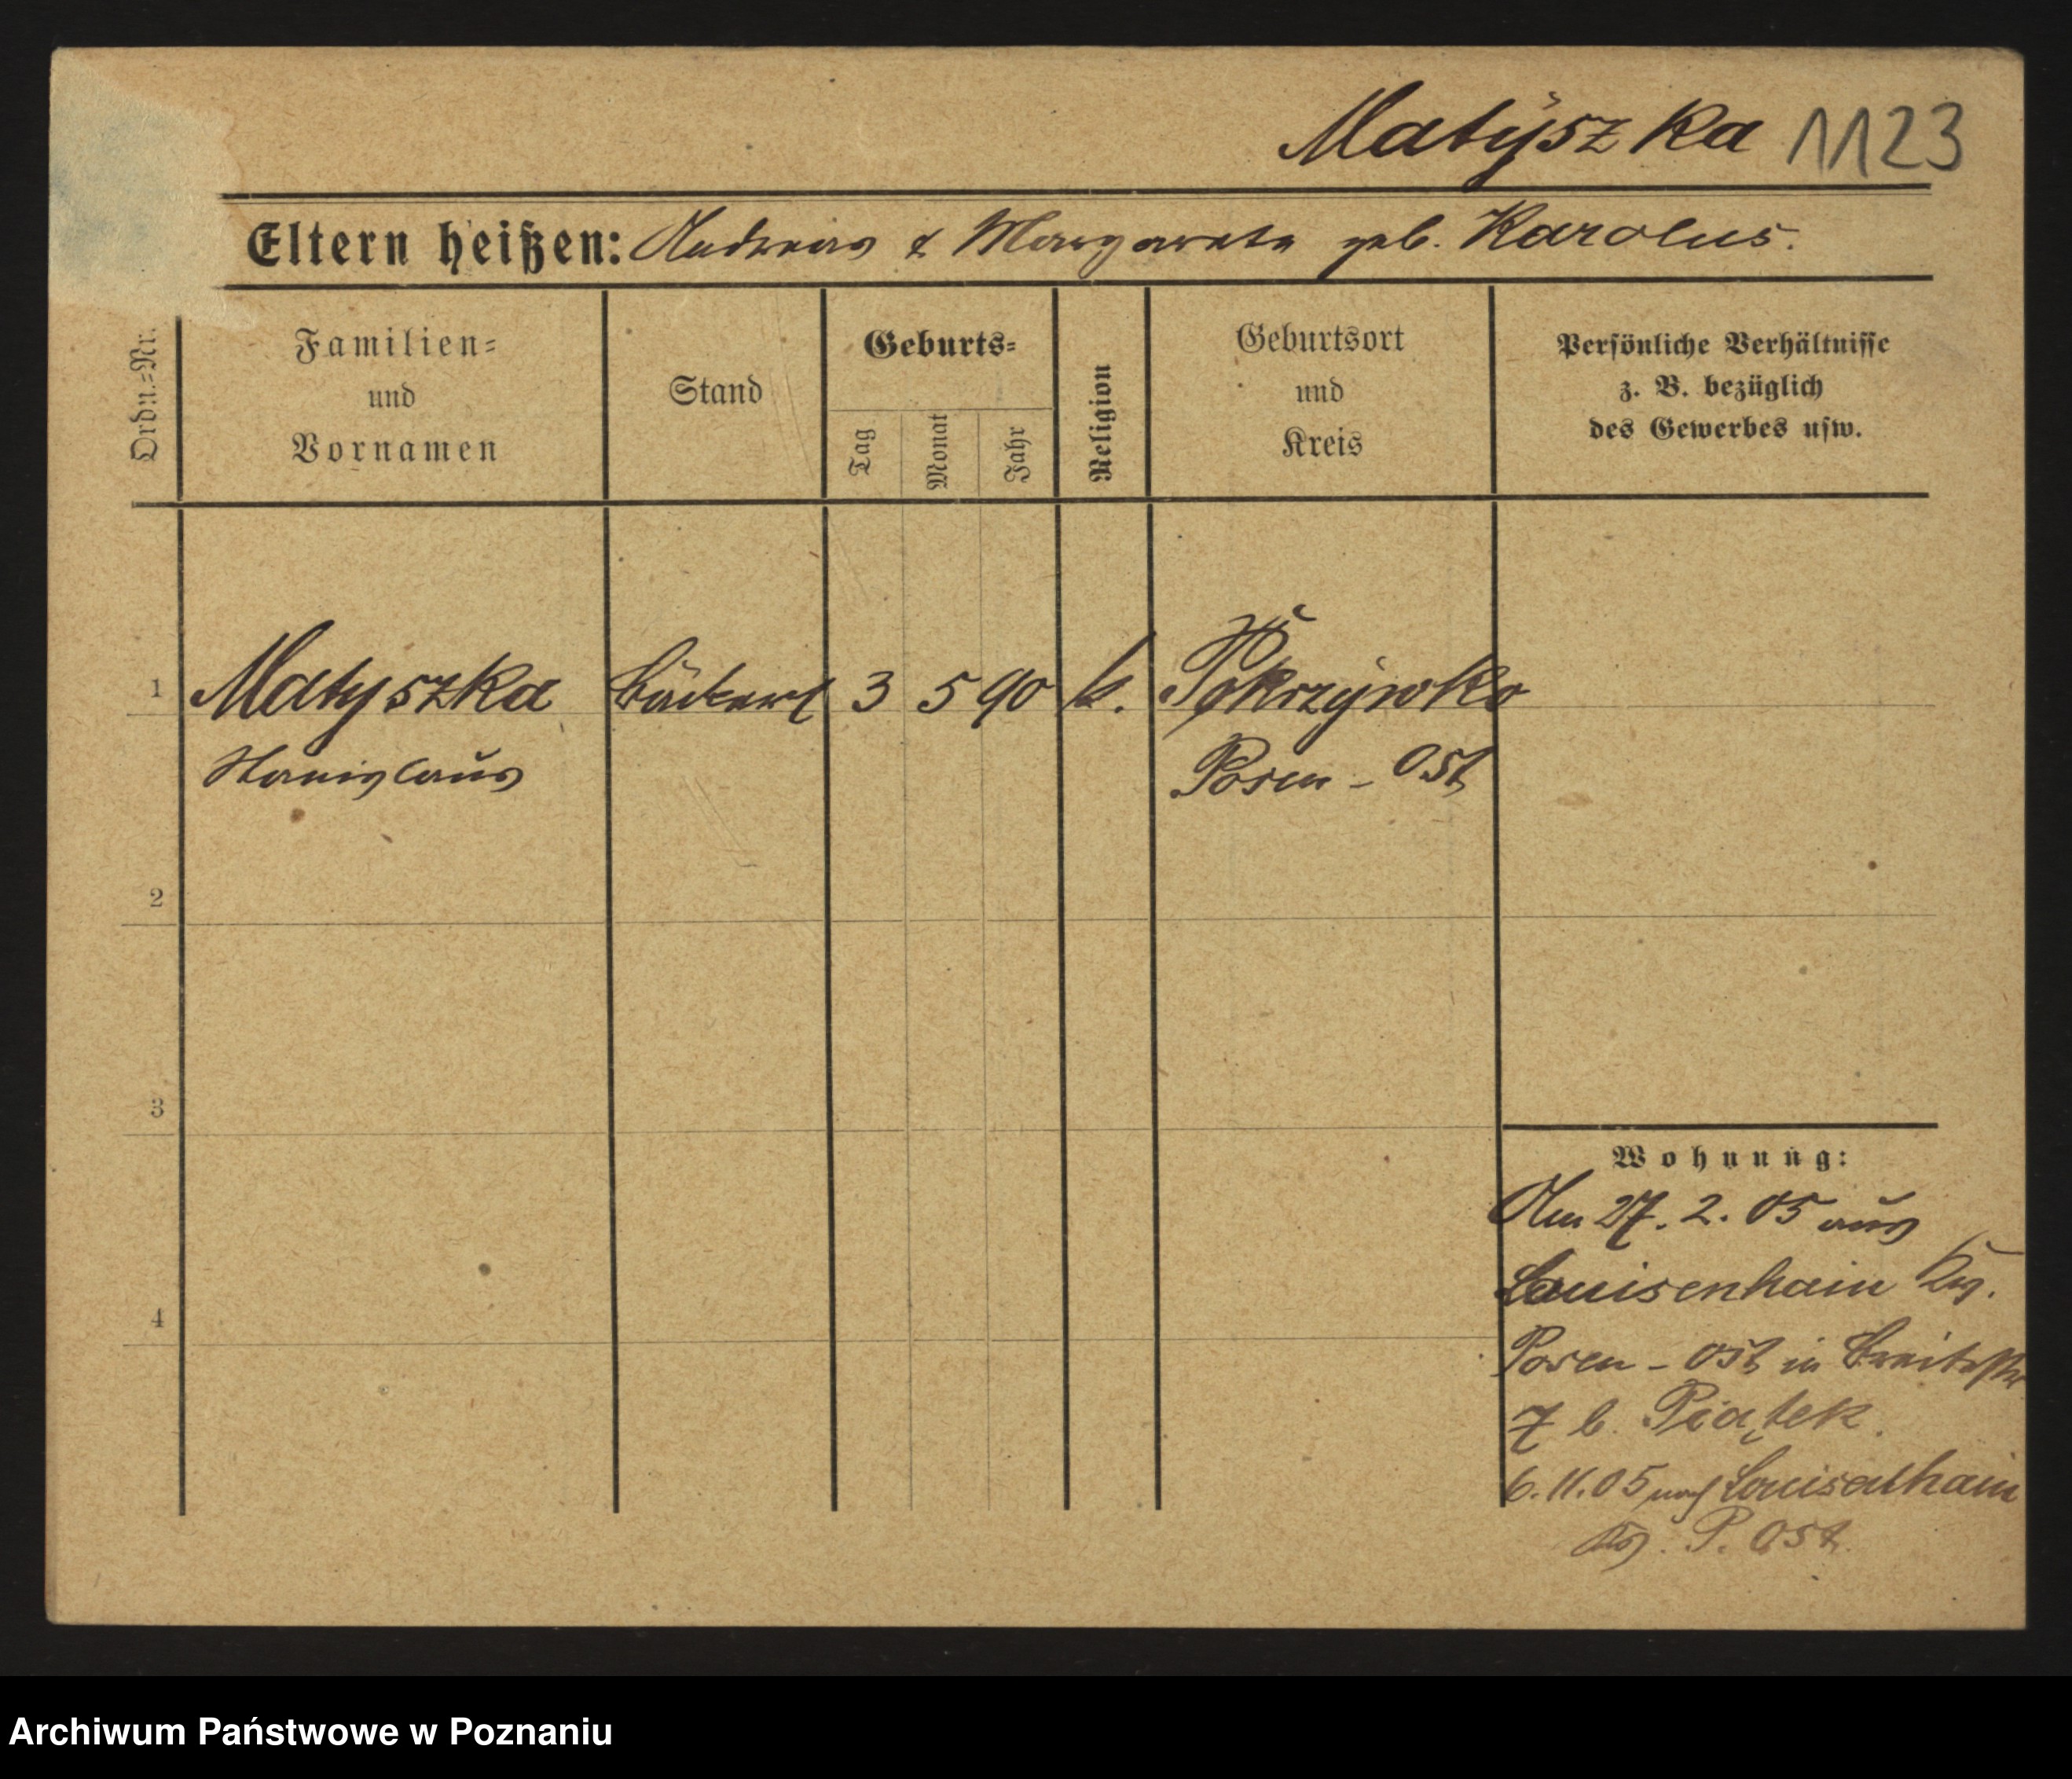 Matyszka 1123
Eltern heißen: Andreas & Margareta geb. Karolus.
Ordn.=Nr.
Familien=
und
Vornamen
Stand
Geburts=
Tag
Monat
Jahr
Religion
Geburtsort
und
Kreis
Persönliche Verhältnisse
z. B. bezüglich
des Gewerbes usw.
1 Matyszka 3 5 90 k. Pokrzywko
Stanislaus Posen - Ost
2
3
4
Wohnung:
Am 27. 2. 05 aus
Louisenhain Krs.
Posen - Ost in Breitestr
7 b. Piątek.
6. 11. 05 nach Louisenhain
Krs. P. Ost.
Archiwum Państwowe w Poznaniu